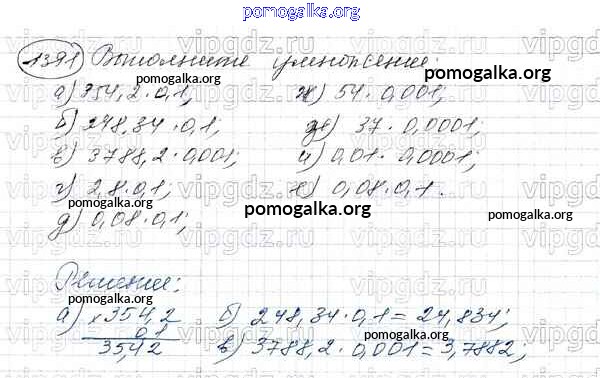 pomogalka.org
1391 Выполните умножение:
pomogalka.org
а) 354,2 · 0,1;
ж) 54 · 0,001;
pomogalka.org
б) 248,34 · 0,1;
з) 37 · 0,0001;
в) 3788,2 · 0,001;
и) 0,01 · 0,0001;
pomogalka.org
г) 2,8 · 0,1;
е) 0,08 · 0,1.
pomogalka.org
pomogalka.org
д) 0,08 · 0,1;
vipgdz.ru vipgdz.ru vipgdz.ru
Решение:
pomogalka.org
а) × 354,2
0,1
35,42
б) 248,34 · 0,1 = 24,834;
pomogalka.org
в) 3788,2 · 0,001 = 3,7882;